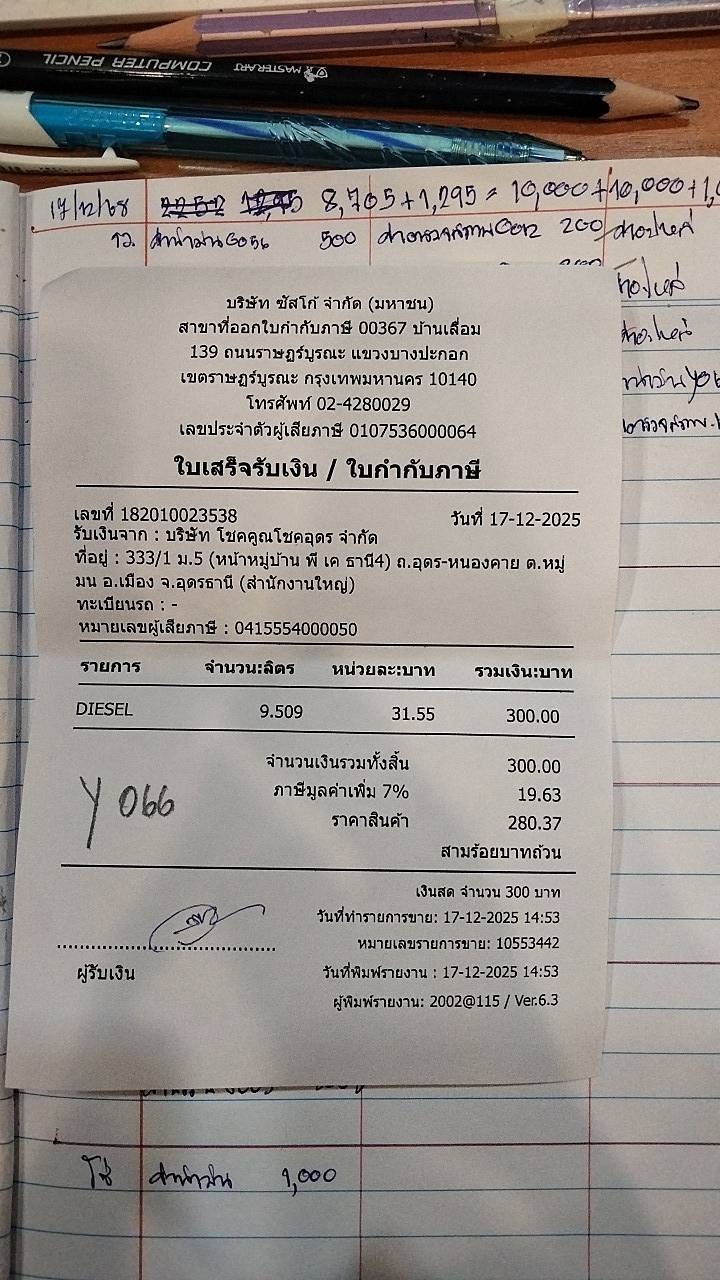 MASTERART COMPUTER PENCIL
17/12/68 8,705+1,295 = 10,000+10,000+1,0
ค่าน้ำมันGo56 500 ค่าตรวจสภาพGo12 200
บริษัท ซัสโก้ จำกัด (มหาชน)
สาขาที่ออกใบกำกับภาษี 00367 บ้านเลื่อม
139 ถนนราษฎร์บูรณะ แขวงบางปะกอก
เขตราษฎร์บูรณะ กรุงเทพมหานคร 10140
โทรศัพท์ 02-4280029
เลขประจำตัวผู้เสียภาษี 0107536000064
ใบเสร็จรับเงิน / ใบกำกับภาษี
เลขที่ 182010023538 วันที่ 17-12-2025
รับเงินจาก : บริษัท โชคคูณโชคอุดร จำกัด
ที่อยู่ : 333/1 ม.5 (หน้าหมู่บ้าน พี เค ธานี4) ถ.อุดร-หนองคาย ต.หมู่
มน อ.เมือง จ.อุดรธานี (สำนักงานใหญ่)
ทะเบียนรถ : -
หมายเลขผู้เสียภาษี : 0415554000050
รายการ จำนวน:ลิตร หน่วยละ:บาท รวมเงิน:บาท
DIESEL 9.509 31.55 300.00
จำนวนเงินรวมทั้งสิ้น 300.00
ภาษีมูลค่าเพิ่ม 7% 19.63
ราคาสินค้า 280.37
Y 066
สามร้อยบาทถ้วน
เงินสด จำนวน 300 บาท
วันที่ทำรายการขาย: 17-12-2025 14:53
หมายเลขรายการขาย: 10553442
ผู้รับเงิน วันที่พิมพ์รายงาน : 17-12-2025 14:53
ผู้พิมพ์รายงาน: 2002@115 / Ver.6.3
ค่าน้ำมัน 1,000